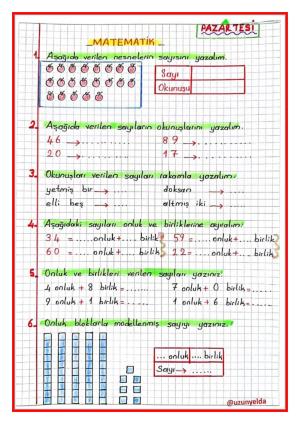 PAZARTESİ
MATEMATİK
1. Aşağıda verilen nesnelerin sayısını yazalım.
Sayı
Okunuşu
2. Aşağıda verilen sayıların okunuşlarını yazalım.
46 → ........ 89 → ........
20 → ........ 17 → ........
3. Okunuşları verilen sayıları rakamla yazalım.
yetmiş bir → .... doksan → ....
elli beş → .... altmış iki → ....
4. Aşağıdaki sayıları onluk ve birliklerine ayıralım.
34 = .... onluk + .... birlik 59 = .... onluk + .... birlik
60 = .... onluk + .... birlik 22 = .... onluk + .... birlik
5. Onluk ve birlikleri verilen sayıları yazınız.
4 onluk + 8 birlik = ...... 7 onluk + 0 birlik = ......
9 onluk + 1 birlik = ...... 1 onluk + 6 birlik = ......
6. Onluk bloklarla modellenmiş sayıyı yazınız.
.... onluk .... birlik
Sayı → ......
@uzunyelda